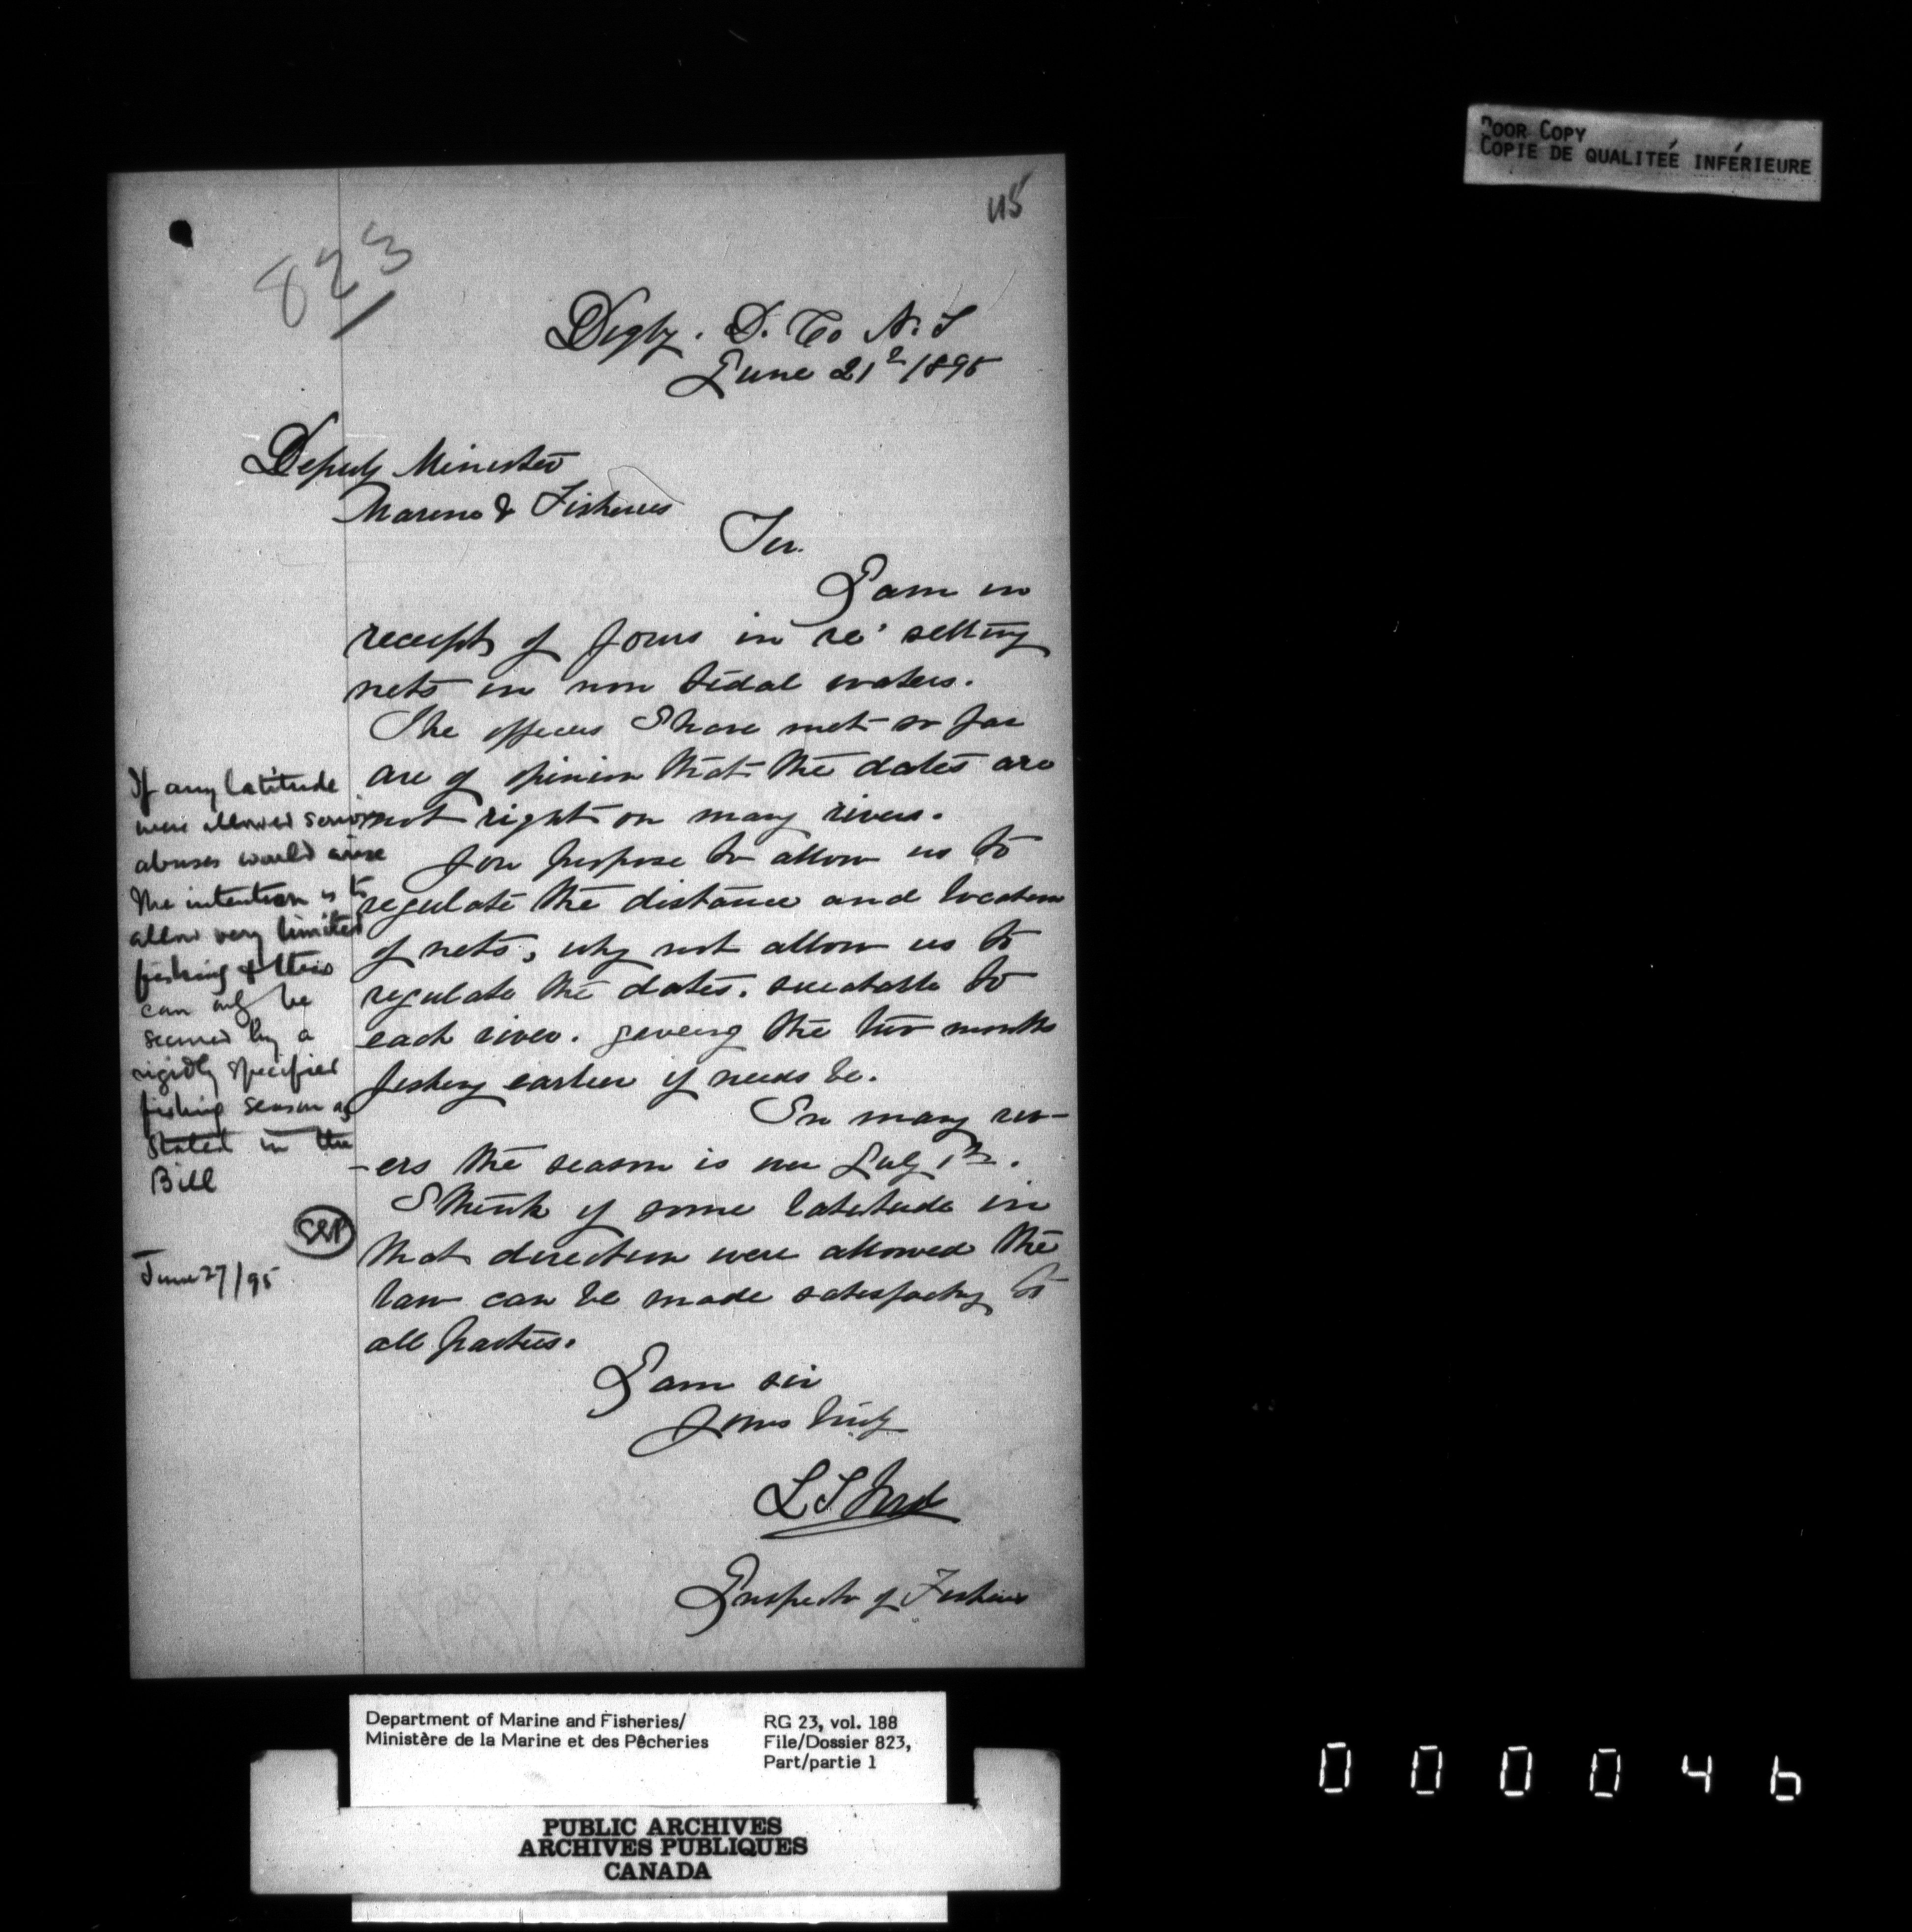 POOR COPY
COPIE DE QUALITEÉ INFÉRIEURE
115
823
Digby. D. Co N.S
June 21st/1895
Deputy Minister
Marine & Fisheries
Sir.
I am in
receipt of yours in re' setting
nets in non tidal waters.
The officers I have met so far
are of opinion that the dates are
not right on many rivers.
You propose to allow us to
regulate the distance and location
of nets, why not allow us to
regulate the dates. sueatable to
each river. giveing the two months
fishing earlier if needs be.
In many riv-
-ers the season is over July 1st.
I think if some latitude in
that direction were allowed the
law can be made satisfactory to
all parties.
I am sir
Yours truly
L S Ford
Inspector of Fisheries
If any latitude
were allowed serious
abuses would arise
The intention is to
allow very limited
fishing & this
can only be
secured by a
rigidly specified
fishing season as
stated in the
Bill
EEP
June 27/95
Department of Marine and Fisheries/
Ministère de la Marine et des Pêcheries
RG 23, vol. 188
File/Dossier 823,
Part/partie 1
PUBLIC ARCHIVES
ARCHIVES PUBLIQUES
CANADA
000046